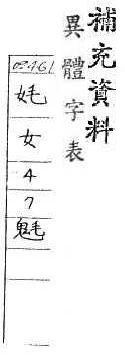 補充資料
異體字表
02461
女
4
7